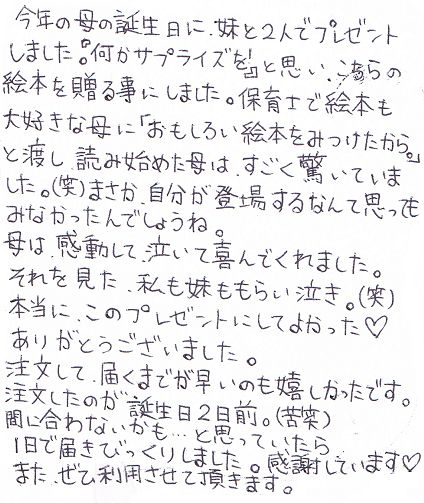 今年の母の誕生日に、妹と2人でプレゼント
しました。『何かサプライズを!』と思い、こちらの
絵本を贈る事にしました。保育士で絵本も
大好きな母に「おもしろい絵本をみつけたから。」
と渡し、読み始めた母は、すごく驚いていま
した。(笑)まさか、自分が登場するなんて思っても
みなかったんでしょうね。
母は、感動して、泣いて喜んでくれました。
それを見た、私も妹ももらい泣き。(笑)
本当に、このプレゼントにしてよかった♡
ありがとうございました。
注文して、届くまでが早いのも嬉しかったです。
注文したのが誕生日2日前。(苦笑)
間に合わないかも…と思っていたら
1日で届きびっくりしました。感謝しています♡
また、ぜひ利用させて頂きます。